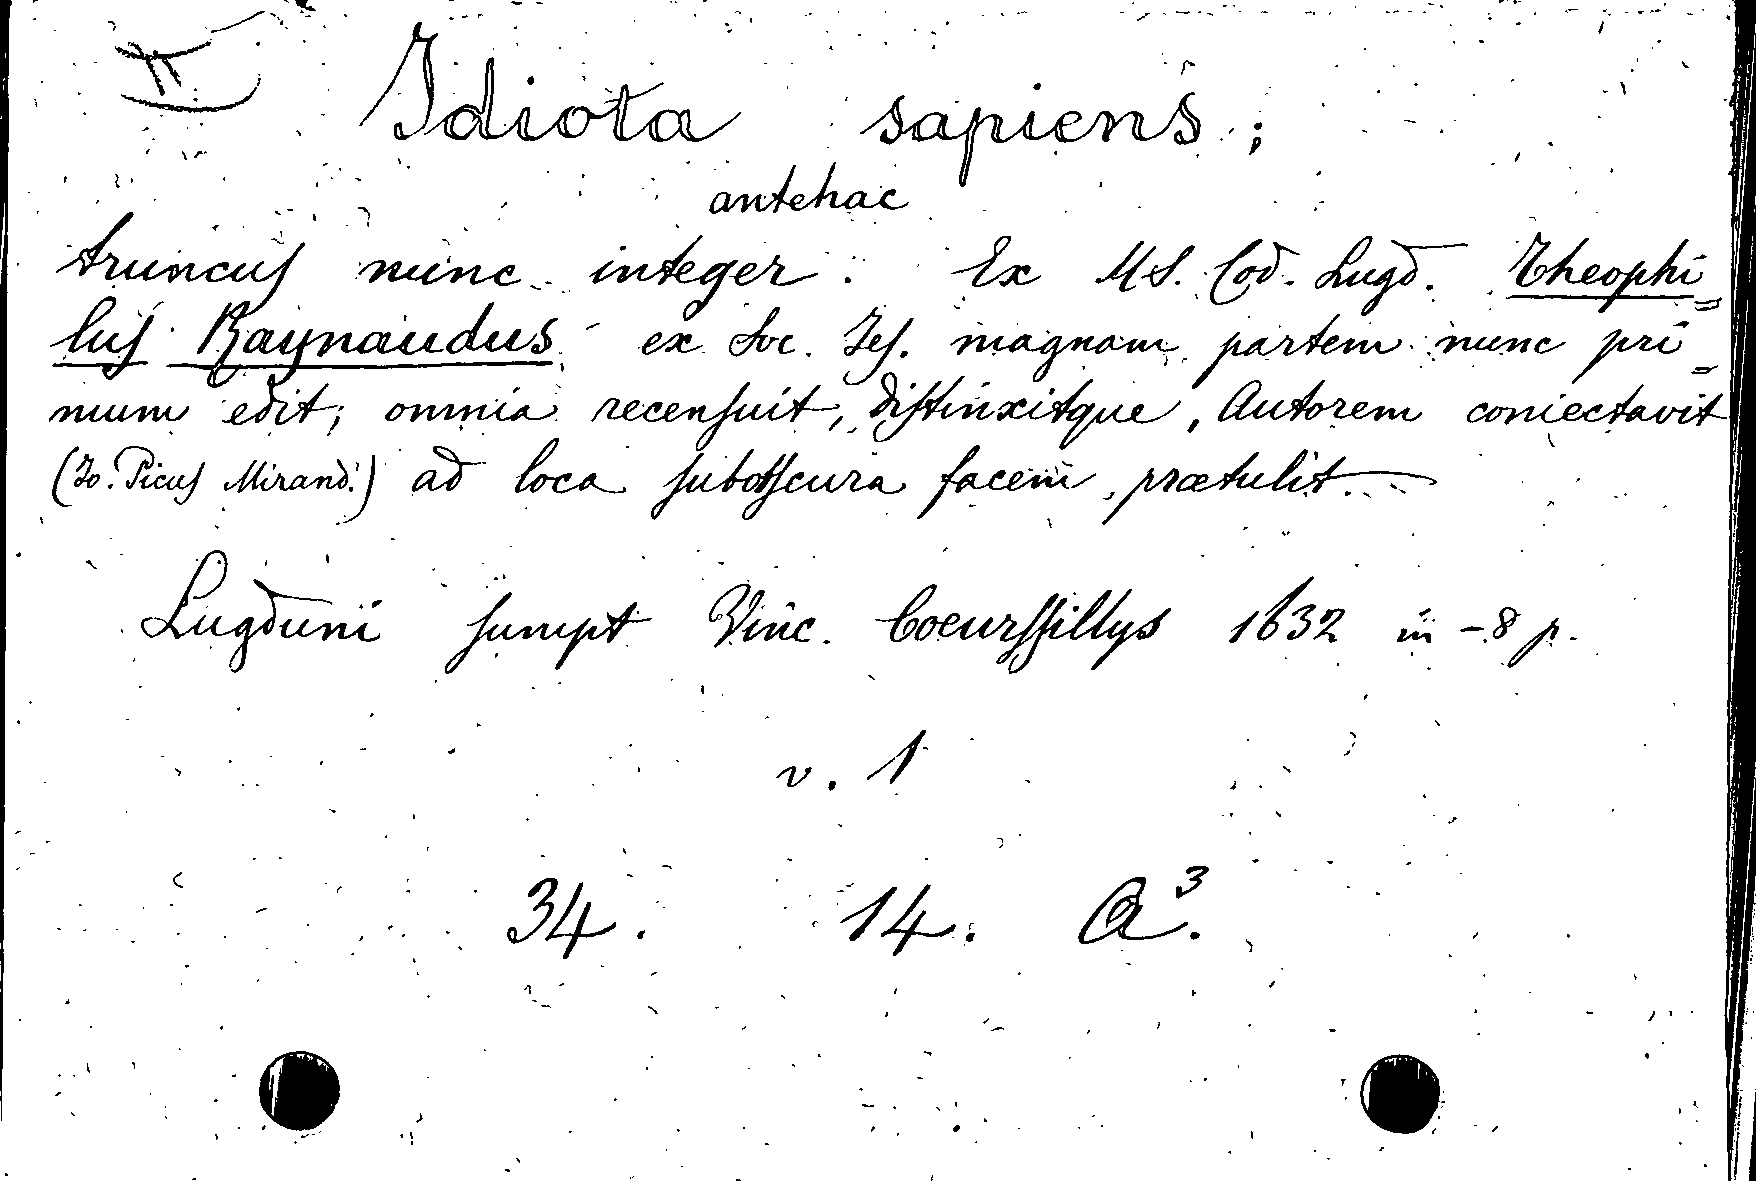 II
Idiota sapiens;
antehac
truncus nunc integer. Ex MS. Cod. Lugd. Theophi=
lus Raynaudus ex Soc. Jes. magnam partem nunc pri=
mum edit; omnia recensuit, distinxitque, Autorem coniectavit
(Jo. Picus Mirand.) ad loca subobscura facem praetulit.
Lugduni sumpt Vinc. Coeurssillys 1632 in-8 p.
v. 1
34. 14. A³.